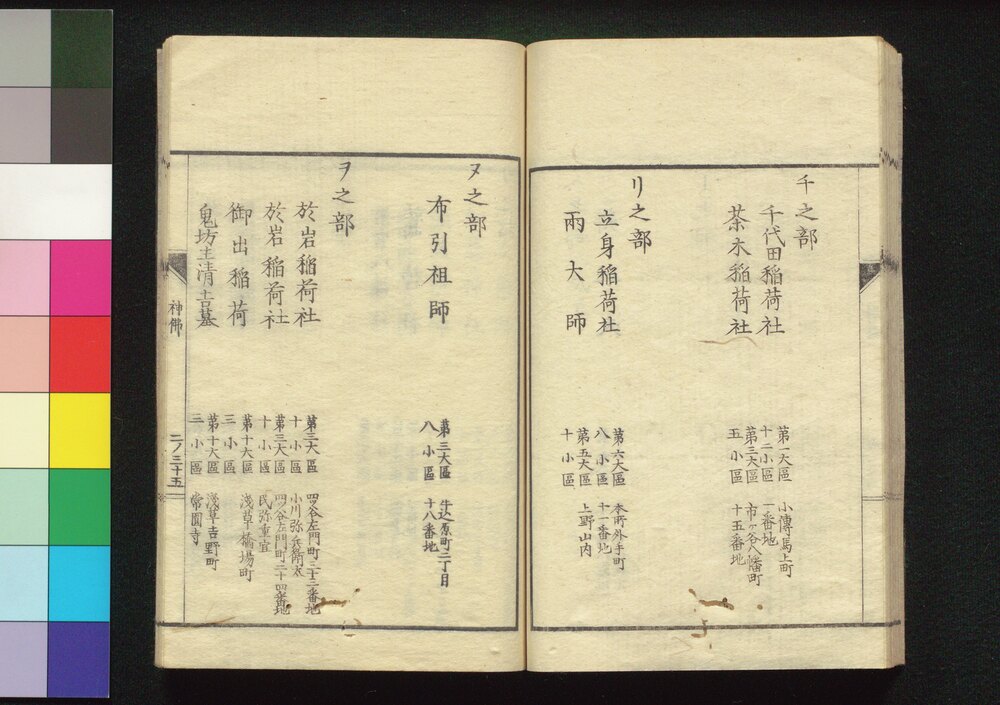 チ之部
千代田稲荷社
第一大區
十二小區
小傳馬上町
一番地
茶木稲荷社
第三大區
五小區
市ヶ谷八幡町
十五番地
リ之部
立身稲荷社
第六大區
八小區
本所外手町
十一番地
兩大師
第五大區
十小區
上野山内
ヌ之部
布引祖師
第三大區
八小區
牛込原町二丁目
十八番地
ヲ之部
於岩稲荷社
第三大區
十小區
四谷左門町三十二番地
於岩稲荷社
第三大區
十小區
四谷左門町二十四番地
御出稲荷
第十大區
三小區
淺草橋場町
鬼坊主清吉墓
第十大區
三小區
淺草吉野町
常圓寺
神佛
二ノ三十五